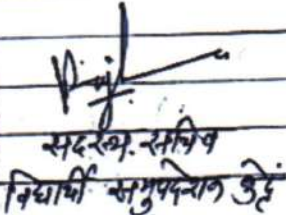 सदस्य सचिव
विद्यार्थी समुपदेशन केंद्र